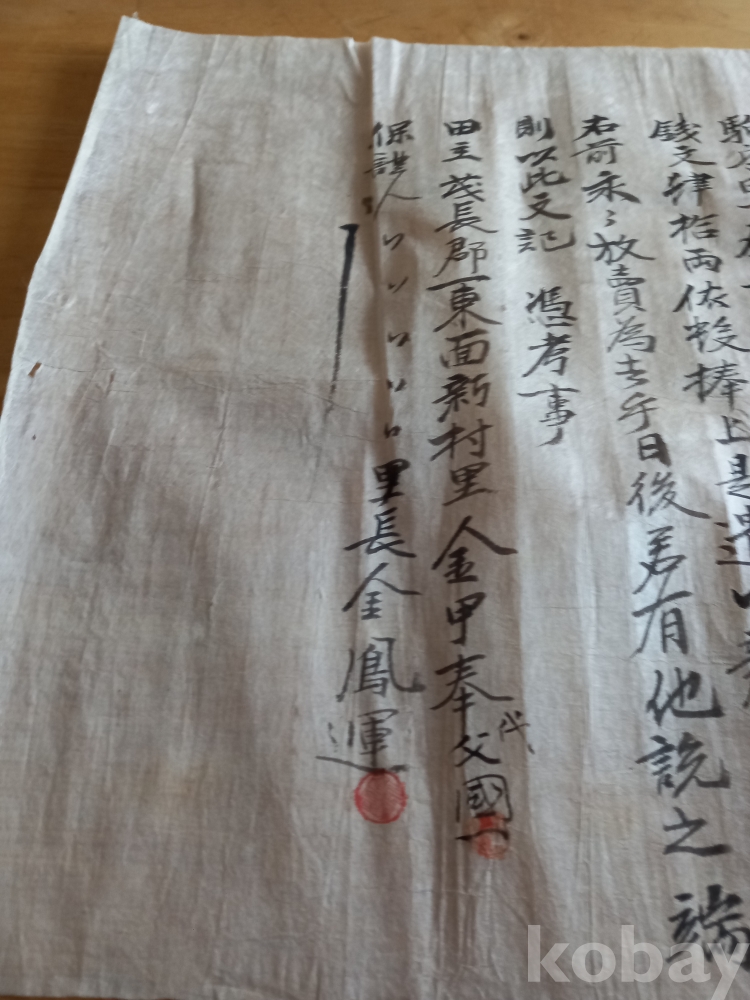 錢文肆拾兩依數捧上是遣
右前永〻放賣為去乎日後若有他說之端
則以此文記憑考事
田主茂長郡一東面新村里人金甲奉代父國一
保證人〃〃〃〃〃里長金鳳運
kobay